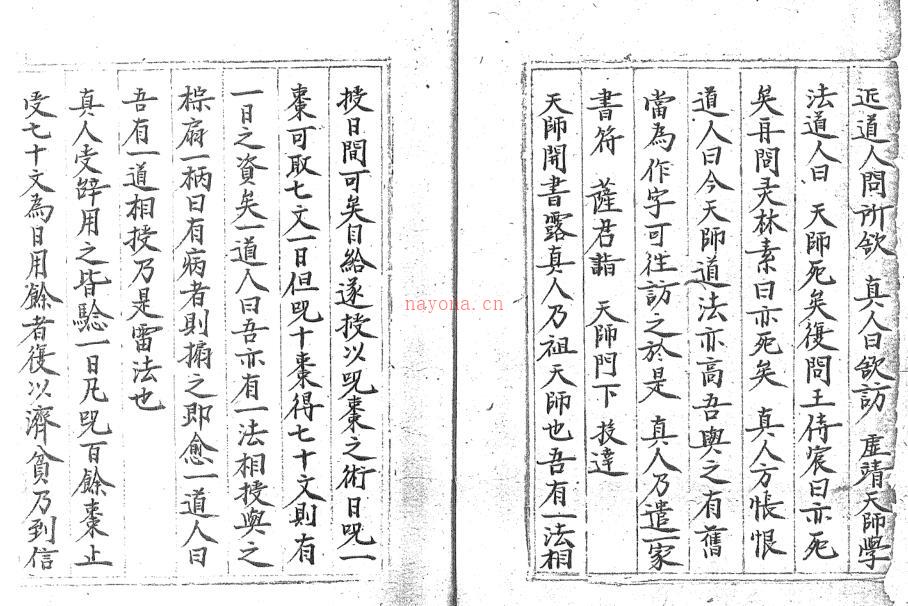 近道人問所欲　真人曰欲訪　虛靖天師學
法道人曰　天師死矣復問王侍宸曰亦死
矣再問灵林素曰亦死矣　真人方悵恨
道人曰今天師道法亦高吾與之有舊
當為作字可往訪之於是　真人乃遣一家
書符　薩君詣　天師門下投達
天師開書露真人乃祖天師也吾有一法相
授日間可矣自給遂授以咒棗之術日咒一
棗可取七文一日但咒十棗得七十文則有
一日之資矣一道人曰吾亦有一法相授與之
棕扇一柄曰有病者則搧之即愈一道人曰
吾有一道相授乃是雷法也
真人受辤用之皆驗一日凡咒百餘棗止
受七十文為日用餘者復以濟貧乃到信
nayona.cn